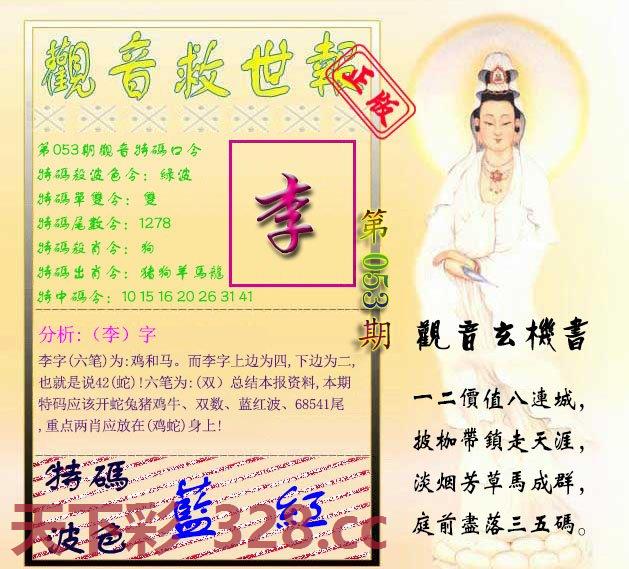 觀音救世報
正版
第053期觀音特碼口令
特碼殺波色令：綠波
特碼單雙令：雙
特碼尾數令：1278
特碼殺肖令：狗
特碼出肖令：豬狗羊馬龍
特中碼令：10 15 16 20 26 31 41
李
第053期
分析:（李）字
李字(六笔)为:鸡和马。而李字上边为四,下边为二,
也就是说42(蛇)!六笔为:(双）总结本报资料,本期
特码应该开蛇兔猪鸡牛、双数、蓝红波、68541尾
,重点两肖应放在(鸡蛇)身上!
特碼
波色
藍 紅
天下彩 328.cc
觀音玄機書
一二價值八連城，
披枷帶鎖走天涯，
淡烟芳草馬成群，
庭前盡落三五碼。